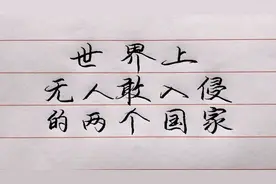 世界上
无人敢入侵
的两个国家